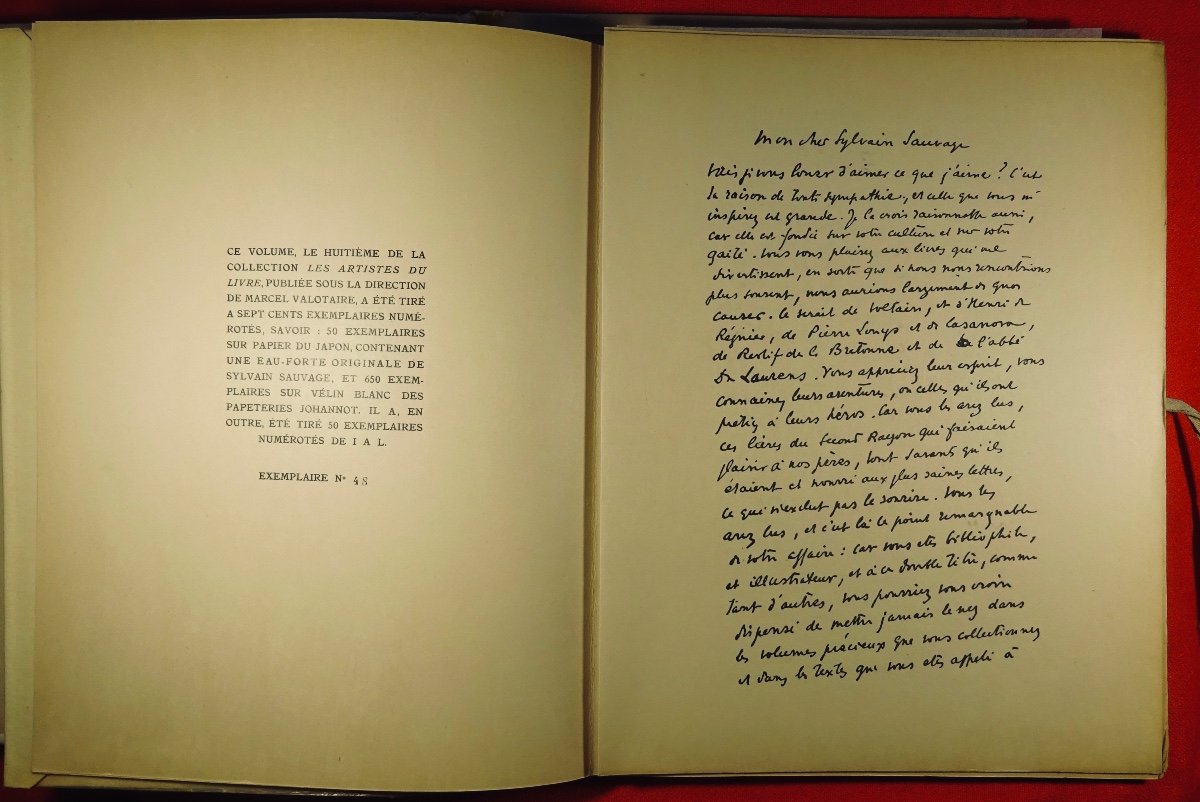 CE VOLUME, LE HUITIÈME DE LA
COLLECTION LES ARTISTES DU
LIVRE, PUBLIÉE SOUS LA DIRECTION
DE MARCEL VALOTAIRE, A ÉTÉ TIRÉ
A SEPT CENTS EXEMPLAIRES NUMÉ-
ROTÉS, SAVOIR : 50 EXEMPLAIRES
SUR PAPIER DU JAPON, CONTENANT
UNE EAU-FORTE ORIGINALE DE
SYLVAIN SAUVAGE, ET 650 EXEM-
PLAIRES SUR VÉLIN BLANC DES
PAPETERIES JOHANNOT. IL A, EN
OUTRE, ÉTÉ TIRÉ 50 EXEMPLAIRES
NUMÉROTÉS DE I A L.
EXEMPLAIRE N° 48
Mon cher Sylvain Sauvage
vous louer d'aimer ce que j'aime ? C'est
la raison de toute sympathie, et celle que vous m'
inspirez est grande. Je la crois raisonnable aussi,
car elle est fondée sur votre culture et sur votre
gaité. Vous vous plaisez aux livres qui me
divertissent, en sorte que si nous nous rencontrions
plus souvent, nous aurions largement de quoi
causer. Ce serait de Voltaire, et d'Henri de
Régnier, de Pierre Louys et de Casanova,
de Restif de la Bretonne et de l'abbé
Du Laurens. Vous appréciez leur esprit, vous
connaissez leurs aventures, ou celles qu'ils ont
prêtées à leurs héros. Car vous les avez lus,
ces livres du Second Rayon qui faisaient
plaisir à nos pères, tout savants qu'ils
étaient et nourris aux plus saines lettres,
ce qui n'exclut pas le sourire. Vous les
avez lus, et c'est là le point remarquable
de votre affaire : car vous êtes bibliophile,
et illustrateur, et à ce double titre, comme
tant d'autres, vous pourriez vous croire
dispensé de mettre jamais le nez dans
les volumes précieux que vous collectionnez
et dans les textes que vous êtes appelé à